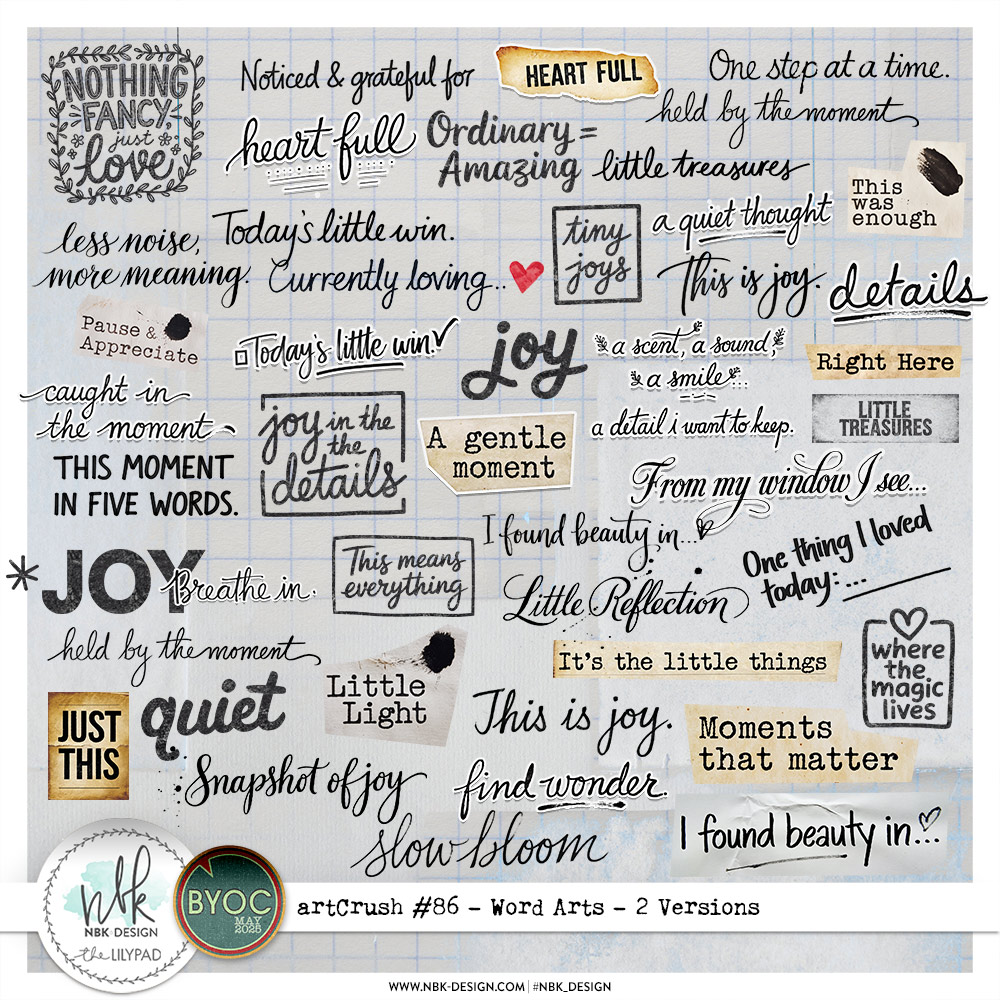 NOTHING
FANCY,
just
love
Noticed & grateful for
HEART FULL
One step at a time.
held by the moment
heart full
Ordinary =
Amazing
little treasures
This
was
enough
less noise,
more meaning.
Today's little win.
Currently loving...
tiny
joys
a quiet thought
This is joy.
details
Pause &
Appreciate
Today's little win.
joy
a scent, a sound,
a smile...
Right Here
caught in
the moment
joy in the
the
details
A gentle
moment
a detail i want to keep.
LITTLE
TREASURES
THIS MOMENT
IN FIVE WORDS.
From my window I see...
I found beauty in...
One thing I loved
today:...
*JOY
Breathe in.
This means
everything
Little Reflection
held by the moment
Little
Light
It's the little things
where
the
magic
lives
JUST
THIS
quiet
This is joy.
Moments
that matter
Snapshot of joy
find wonder.
slow bloom
I found beauty in...
nbk
NBK DESIGN
the LILYPAD
BYOC
MAY
2025
artCrush #86 - Word Arts - 2 Versions
WWW.NBK-DESIGN.COM | #NBK_DESIGN